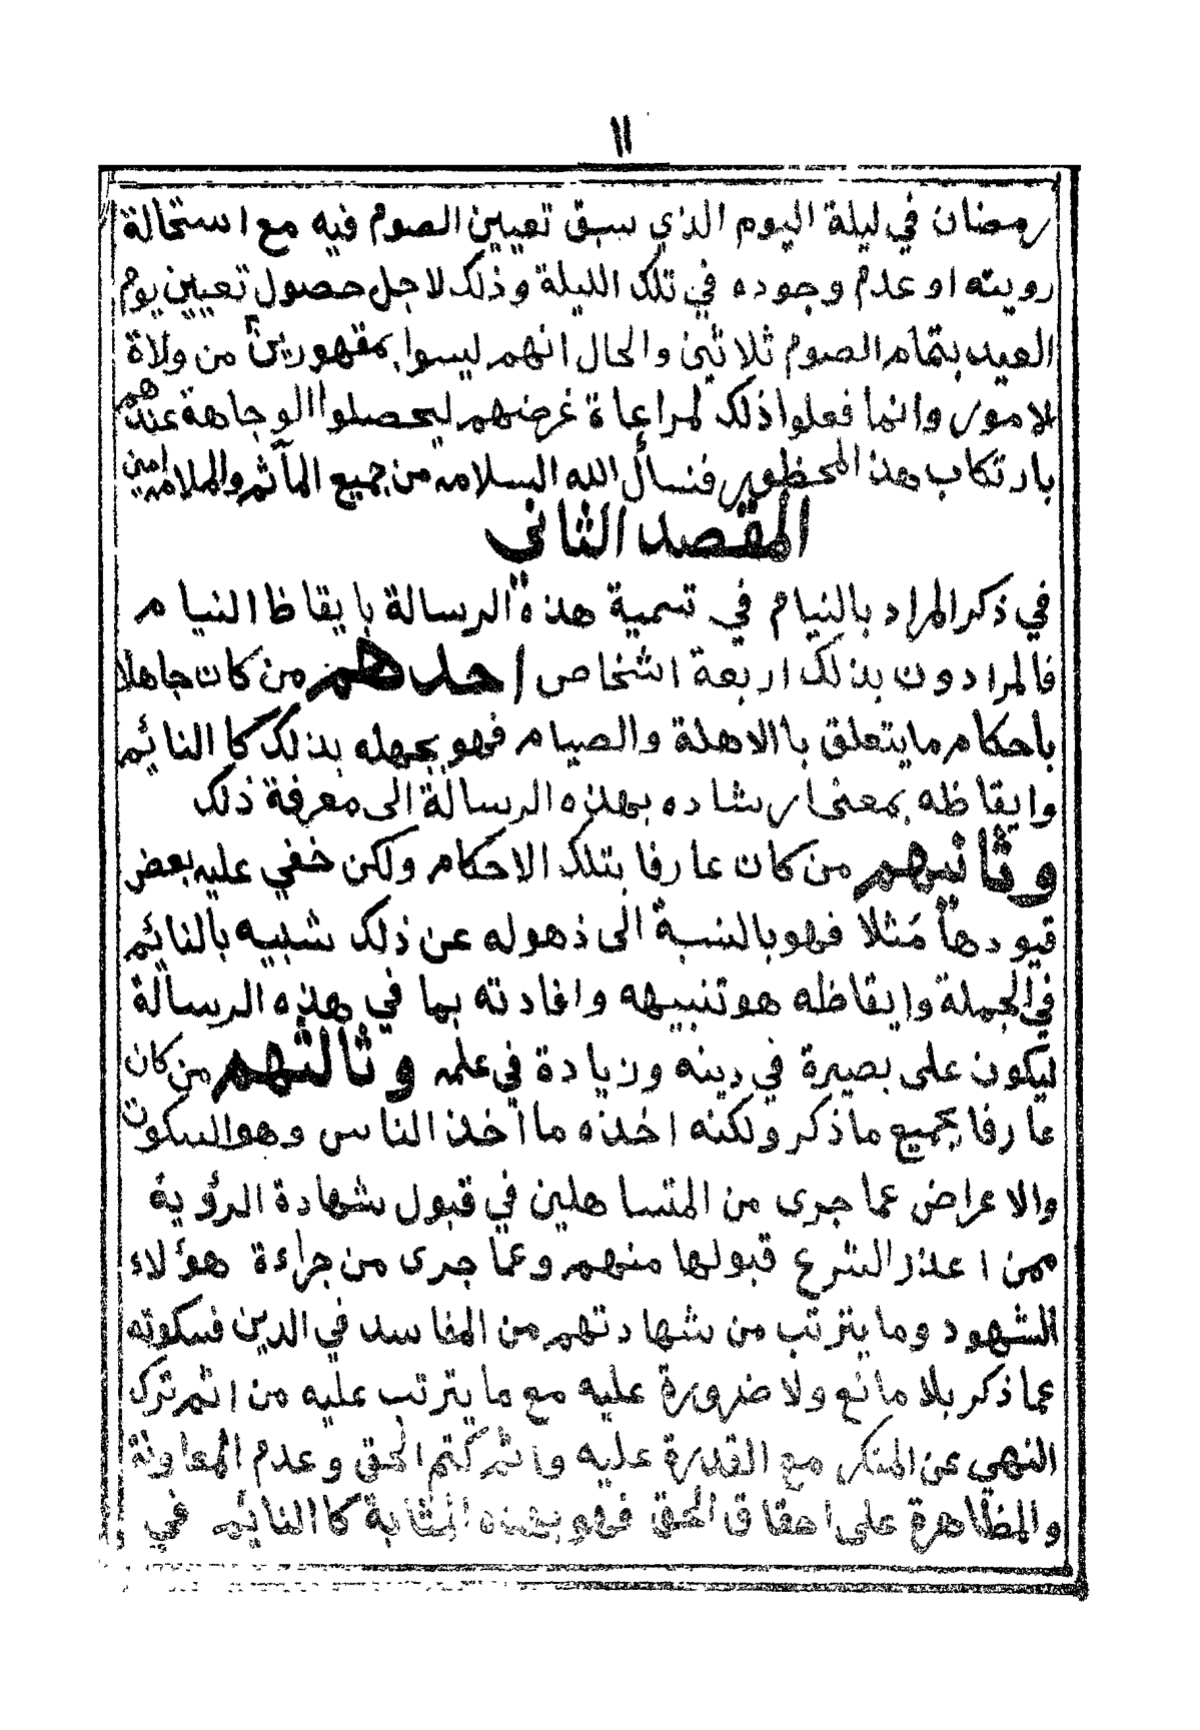 ١١
رمضان في ليلة اليوم الذي سبق تعيين الصوم فيه مع استحالة
رويته او عدم وجوده في تلك الليلة وذلك لاجل حصول تعيين يوم
العيد بتمام الصوم ثلاثين والحال انهم ليسوا بمقهورين من ولاة
لامور وانما فعلوا ذلك لمراعاة غرضهم ليحصلوا الوجاهة عندهم
بارتكاب هذا المحظور فنسأل الله السلامه من جميع المآثم والملامه امين
المقصد الثاني
في ذكر المراد بالنيام في تسمية هذه الرسالة بايقاظ النيام
فالمرادون بذلك اربعة اشخاص احدهم من كان جاهلا
بأحكام ما يتعلق بالاهلة والصيام فهو بجهله بذلك كالنائم
وايقاظه بمعنى ارشاده بهذه الرسالة الى معرفة ذلك
وثانيهم من كان عارفا بتلك الاحكام ولكن خفي عليه بعض
قيودها مثلا فهو بالنسبة الى ذهوله عن ذلك شبيه بالنائم
في الجملة وايقاظه هو تنبيهه وافادته بما في هذه الرسالة
ليكون على بصيرة في دينه وزيادة في علمه وثالثهم من كان
عارفا بجميع ما ذكر ولكنه اخذه ما أخذ الناس وهو السكوت
والاعراض عما جرى من المتساهلين في قبول شهادة الرؤية
ممن اعذر الشرع قبولها منهم وعما جرى من جراءة هؤلاء
الشهود وما يترتب من شهادتهم من المفاسد في الدين فسكوته
عما ذكر بلا مانع ولا ضرورة عليه مع ما يترتب عليه من اثم ترك
النهي عن المنكر مع القدرة عليه واثم كتم الحق وعدم المعاونة
والمظاهرة على احقاق الحق فهو بهذه المثابة كالنائم في